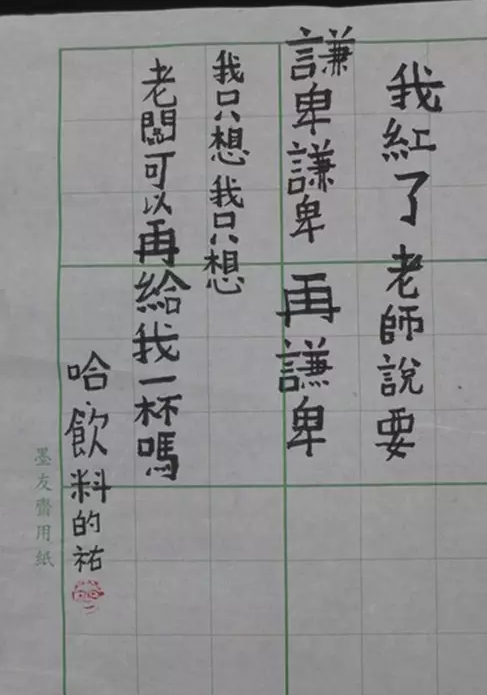 我紅了老師說要
謙卑謙卑再謙卑
我只想我只想
老闆可以再給我一杯嗎
哈飲料的祐
墨友齋用紙